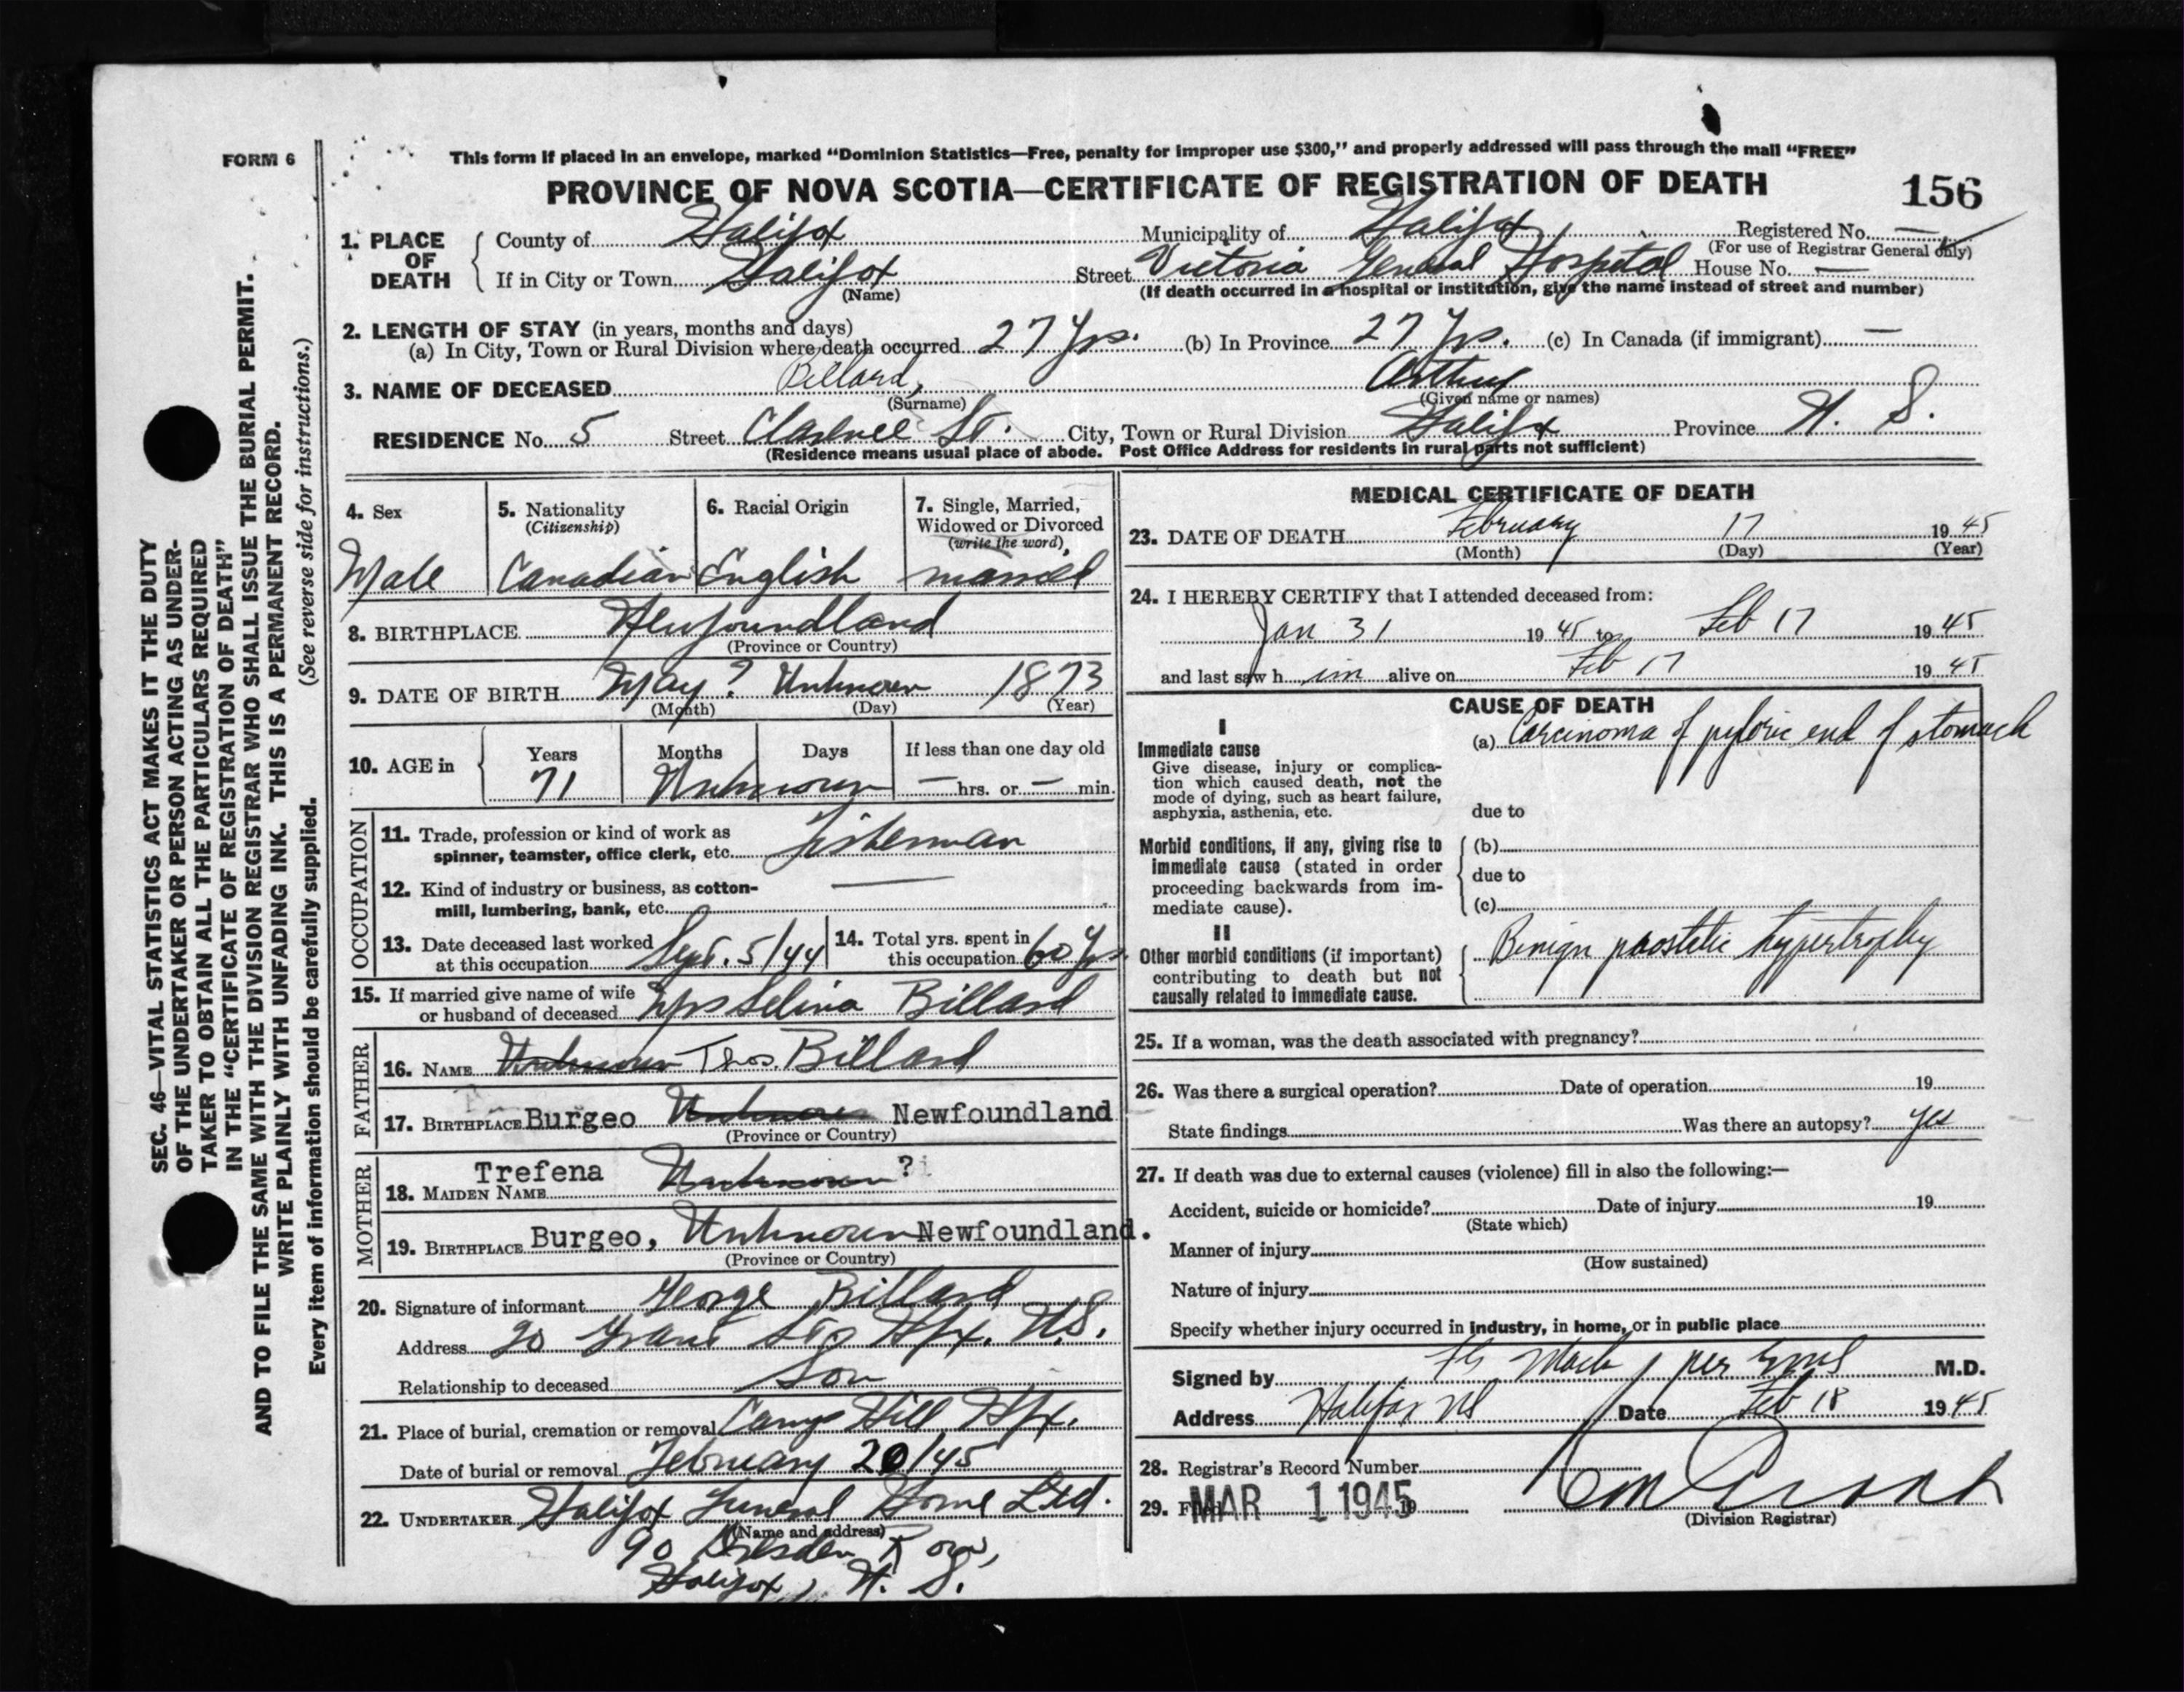 FORM 6
This form if placed in an envelope, marked “Dominion Statistics—Free, penalty for improper use $300,” and properly addressed will pass through the mail “FREE”
PROVINCE OF NOVA SCOTIA—CERTIFICATE OF REGISTRATION OF DEATH
156
1. PLACE OF DEATH
County of Halifax Municipality of Halifax Registered No. —
(For use of Registrar General only)
If in City or Town Halifax Street Victoria General Hospital House No. —
(Name) (If death occurred in a hospital or institution, give the name instead of street and number)
2. LENGTH OF STAY (in years, months and days)
(a) In City, Town or Rural Division where death occurred 27 Yrs. (b) In Province 27 Yrs. (c) In Canada (if immigrant) —
3. NAME OF DECEASED Billard, Arthur
(Surname) (Given name or names)
RESIDENCE No. 5 Street Clarence St. City, Town or Rural Division Halifax Province N. S.
(Residence means usual place of abode. Post Office Address for residents in rural parts not sufficient)
4. Sex
Male
5. Nationality
(Citizenship)
Canadian
6. Racial Origin
English
7. Single, Married,
Widowed or Divorced
(write the word)
married
8. BIRTHPLACE Newfoundland
(Province or Country)
9. DATE OF BIRTH May ? Unknown 1873
(Month) (Day) (Year)
10. AGE in
Years Months Days If less than one day old
71 Unknown — hrs. or — min.
OCCUPATION
11. Trade, profession or kind of work as
spinner, teamster, office clerk, etc. Fisherman
12. Kind of industry or business, as cotton-
mill, lumbering, bank, etc. —
13. Date deceased last worked
at this occupation Sept. 5/44
14. Total yrs. spent in
this occupation 60 Yrs.
15. If married give name of wife
or husband of deceased Mrs Selina Billard
FATHER
16. NAME Unknown Thos. Billard
17. BIRTHPLACE Burgeo Unknown Newfoundland
(Province or Country)
MOTHER
18. MAIDEN NAME Trefena Unknown ?
19. BIRTHPLACE Burgeo, Unknown Newfoundland.
(Province or Country)
20. Signature of informant George Billard
Address 20 Grant St, Hfx. N.S.
Relationship to deceased Son
21. Place of burial, cremation or removal Camp Hill Hfx.
Date of burial or removal February 20/45
22. UNDERTAKER Halifax Funeral Home Ltd.
(Name and address)
90 Dresden Row,
Halifax, N. S.
MEDICAL CERTIFICATE OF DEATH
23. DATE OF DEATH February 17 1945
(Month) (Day) (Year)
24. I HEREBY CERTIFY that I attended deceased from:
Jan 31 1945 to Feb 17 1945
and last saw him alive on Feb 17 1945
CAUSE OF DEATH
I
Immediate cause
Give disease, injury or complica-
tion which caused death, not the
mode of dying, such as heart failure,
asphyxia, asthenia, etc.
(a) Carcinoma of pyloric end of stomach
due to
Morbid conditions, if any, giving rise to
immediate cause (stated in order
proceeding backwards from im-
mediate cause).
(b)
due to
(c)
II
Other morbid conditions (if important)
contributing to death but not
causally related to immediate cause.
Benign prostatic hypertrophy
25. If a woman, was the death associated with pregnancy?
26. Was there a surgical operation? Date of operation 19
State findings Was there an autopsy? yes
27. If death was due to external causes (violence) fill in also the following:—
Accident, suicide or homicide? Date of injury 19
(State which)
Manner of injury
(How sustained)
Nature of injury
Specify whether injury occurred in industry, in home, or in public place
Signed by per M.D.
Address Halifax NS Date Feb 18 1945
28. Registrar's Record Number
29. Filed MAR 1 1945 19
(Division Registrar)
SEC. 46—VITAL STATISTICS ACT MAKES IT THE DUTY
OF THE UNDERTAKER OR PERSON ACTING AS UNDER-
TAKER TO OBTAIN ALL THE PARTICULARS REQUIRED
IN THE “CERTIFICATE OF REGISTRATION OF DEATH”
AND TO FILE THE SAME WITH THE DIVISION REGISTRAR WHO SHALL ISSUE THE BURIAL PERMIT.
WRITE PLAINLY WITH UNFADING INK. THIS IS A PERMANENT RECORD.
Every item of information should be carefully supplied. (See reverse side for instructions.)